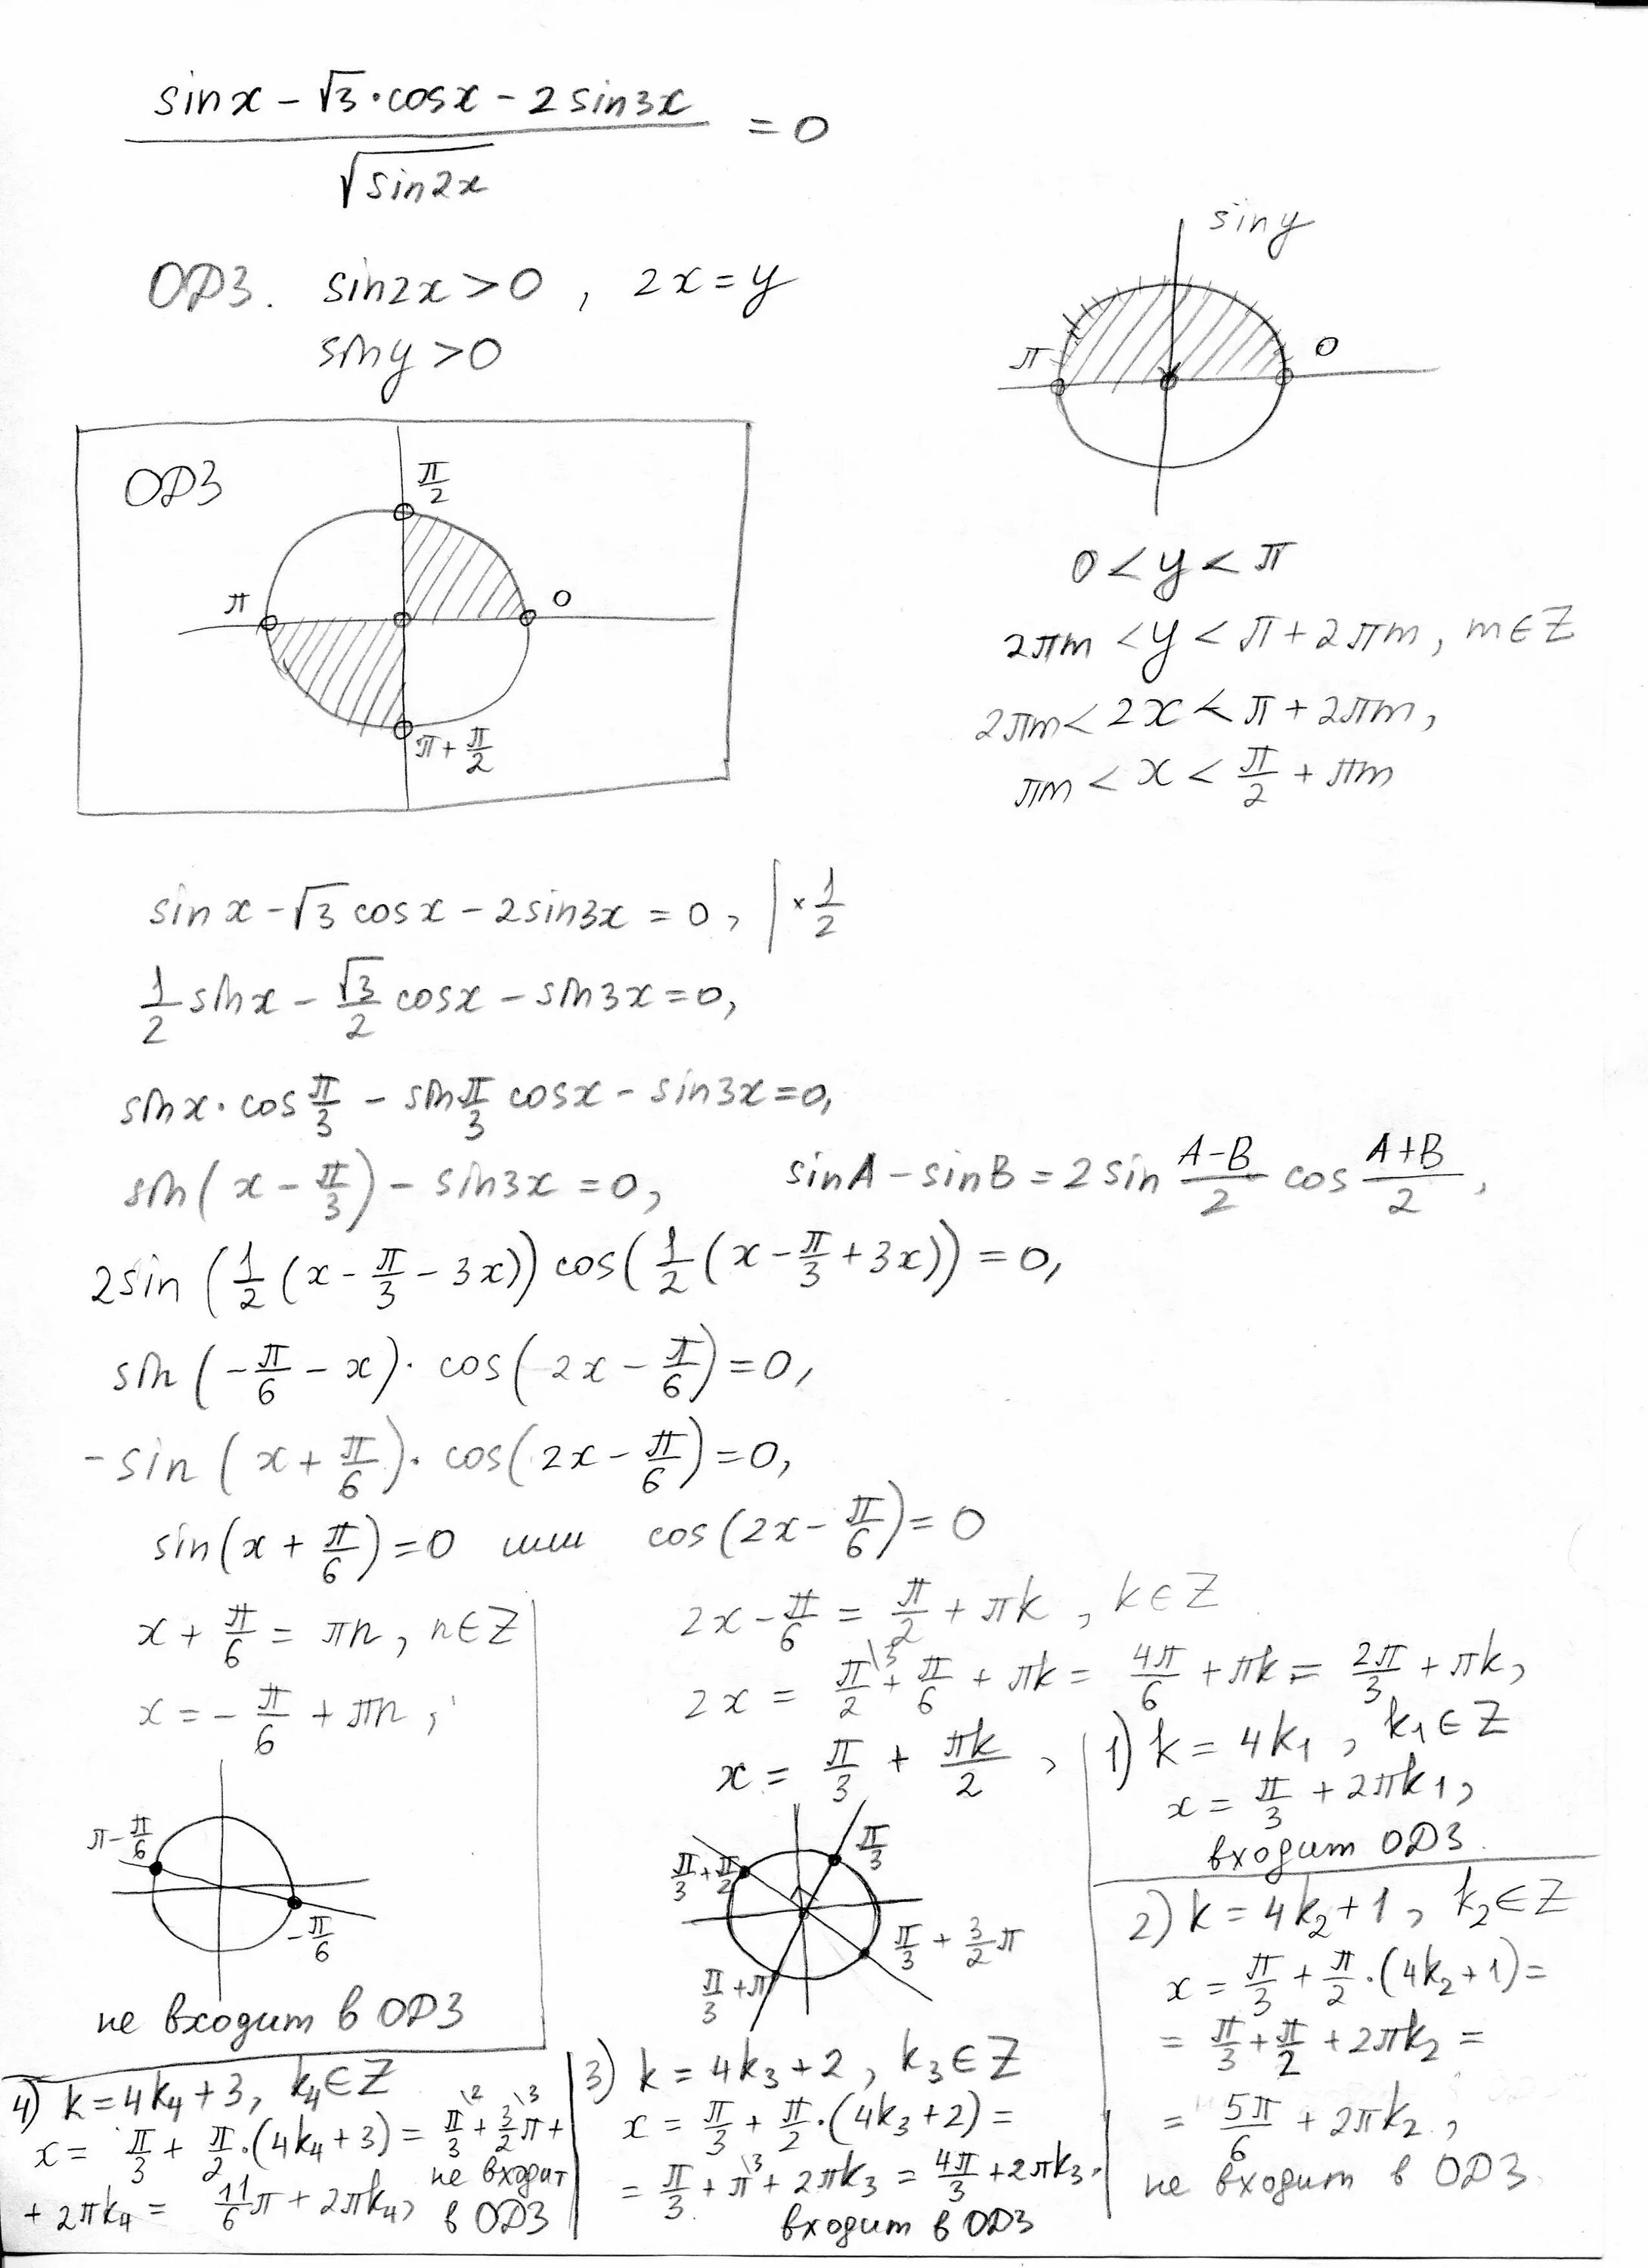 (sinx − √3·cosx − 2sin3x)/√(sin2x) = 0
ОДЗ. sin2x > 0 , 2x = y
siny > 0
siny
π 0
0 < y < π
2πm < y < π + 2πm, m∈Z
2πm < 2x < π + 2πm,
πm < x < π/2 + πm
ОДЗ
π/2
π 0
π + π/2
sinx − √3 cosx − 2sin3x = 0, | × 1/2
1/2 sinx − √3/2 cosx − sin3x = 0,
sinx · cos π/3 − sin π/3 cosx − sin3x = 0,
sin(x − π/3) − sin3x = 0, sinA − sinB = 2sin (A−B)/2 cos (A+B)/2,
2sin(1/2(x − π/3 − 3x)) cos(1/2(x − π/3 + 3x)) = 0,
sin(−π/6 − x) · cos(2x − π/6) = 0,
−sin(x + π/6) · cos(2x − π/6) = 0,
sin(x + π/6) = 0 или cos(2x − π/6) = 0
x + π/6 = πn, n∈Z
x = −π/6 + πn,
π − π/6
−π/6
не входит в ОДЗ
2x − π/6 = π/2 + πk, k∈Z
2x = π/2 \3 + π/6 + πk = 4π/6 + πk = 2π/3 + πk,
x = π/3 + πk/2,
π/3
π/3 + π/2
π/3 + 3/2 π
π/3 + π
1) k = 4k₁, k₁∈Z
x = π/3 + 2πk₁,
входит ОДЗ.
2) k = 4k₂ + 1, k₂∈Z
x = π/3 + π/2 · (4k₂ + 1) =
= π/3 + π/2 + 2πk₂ =
= 5π/6 + 2πk₂,
не входит в ОДЗ.
3) k = 4k₃ + 2, k₃∈Z
x = π/3 + π/2 · (4k₃ + 2) =
= π/3 + π \3 + 2πk₃ = 4π/3 + 2πk₃.
входит в ОДЗ
4) k = 4k₄ + 3, k₄∈Z
x = π/3 + π/2 · (4k₄ + 3) = π/3 \2 + 3/2 \3 π +
+ 2πk₄ = 11/6 π + 2πk₄,
не входит
в ОДЗ